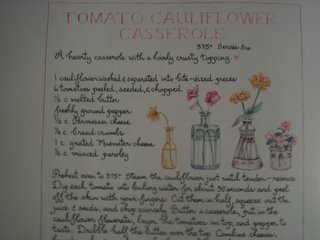 TOMATO CAULIFLOWER
CASSEROLE
375° Serves Six
A hearty casserole with a lovely crusty topping.
1 cauliflower washed & separated into bite-sized pieces
6 tomatoes peeled, seeded, & chopped
½ c. melted butter
freshly ground pepper
½ c. Parmesan cheese
½ c. bread crumbs
1 c. grated Muenster cheese
½ c. minced parsley
Preheat oven to 375° Steam the cauliflower just until tender - reserve
Dip each tomato into boiling water for about 35 seconds and peel
off the skin with your fingers. Cut them in half, squeeze out the
juice & seeds, and chop coarsely. Butter a casserole, put in the
cauliflower flowerets, layer the tomatoes on top, and pepper to
taste. Dribble half the butter over the top. Combine cheeses,